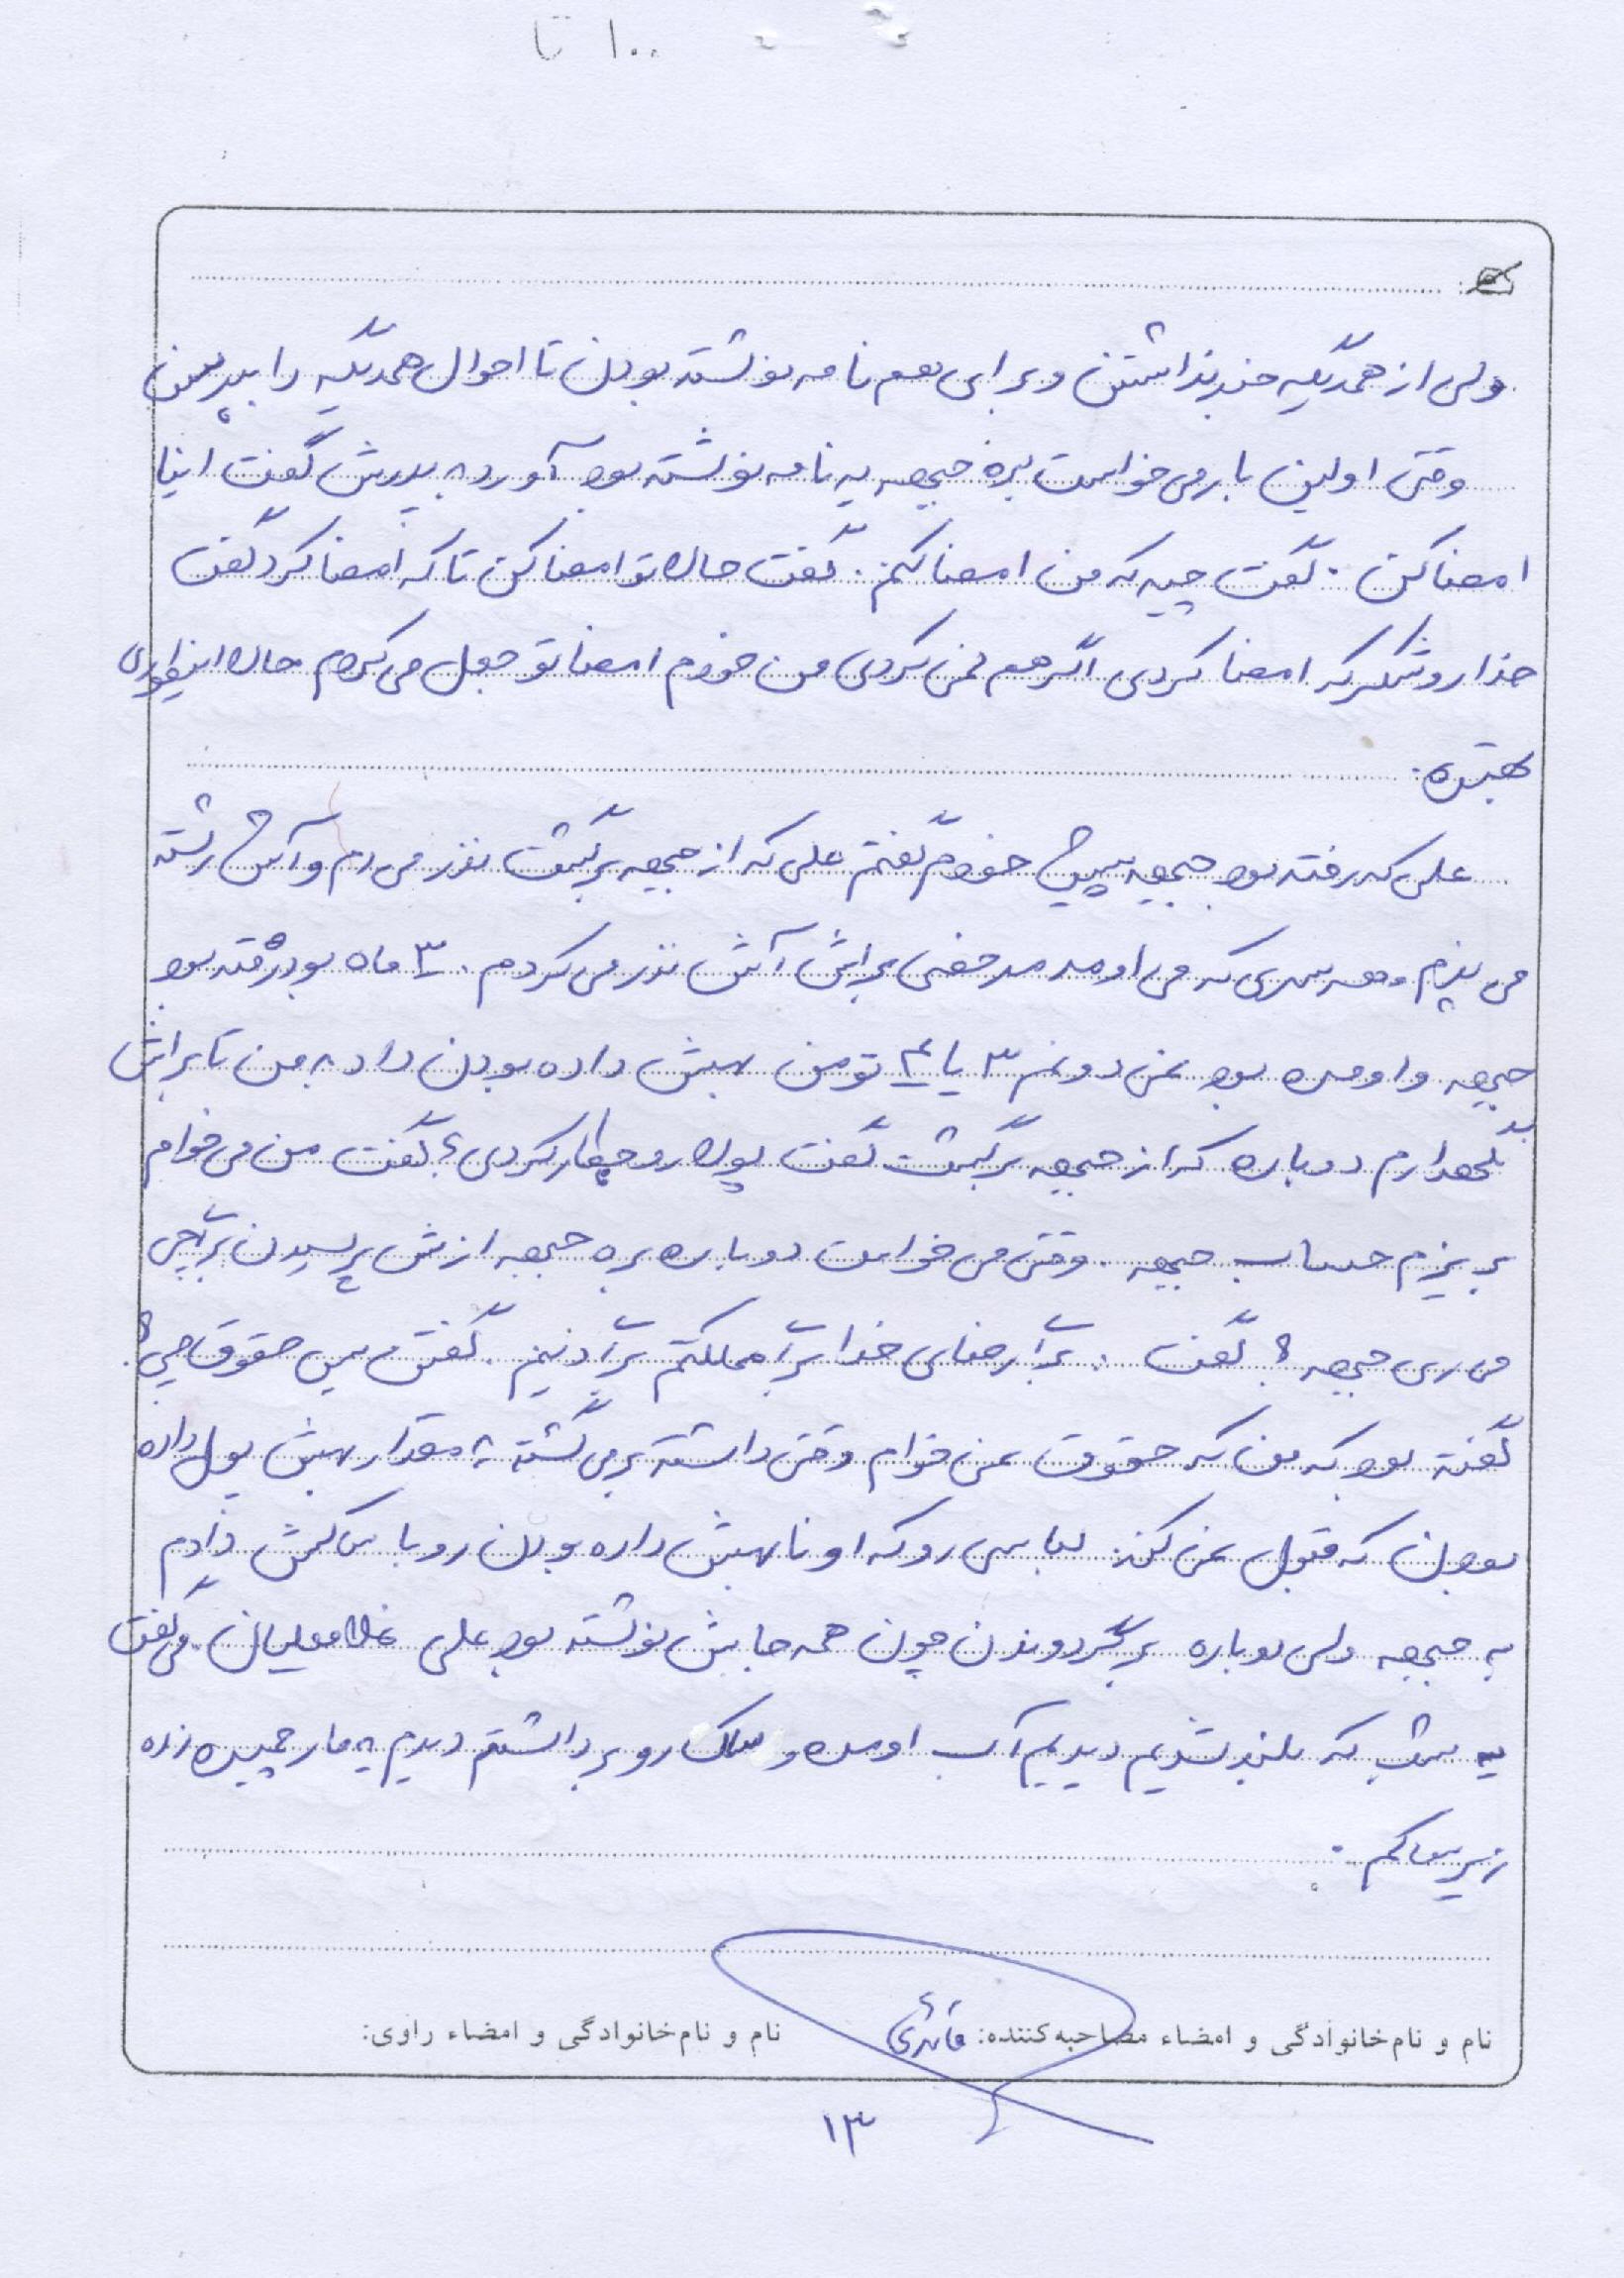 ۱۰۰ تا
ولی از همدیگه خبر نداشتن و برای هم نامه نوشته بودن تا احوال همدیگه را بپرسن
وقتی اولین بار می خواست بره جبهه یه نامه نوشته بود آورد به پدرش گفت اینا
امضا کن . گفت چیه که من امضا کنم . گفت حالا تو امضا کن تا که امضا کرد گفت
خدا رو شکر که امضا کردی اگر هم نمی کردی من خودم امضا تو جعل می کردم حالا اینطوری
بهتره .
علی که رفته بود جبهه پیش خودم گفتم علی که از جبهه برگشت نذر می دم و آش رشته
می پزم و هر سری که می اومد مرخصی براش آش نذر می کردم . ۳ ماه بود رفته بود
جبهه و اومده بود نمی دونم ۳ یا ۴ تومن بهش داده بودن داد به من تا براش
نگهدارم دوباره که از جبهه برگشت گفت پولا رو چکار کردی؟ گفت من می خوام
بریزم حساب جبهه . وقتی می خواست دوباره بره جبهه ازش پرسیدن برا چی
می ری جبهه ؟ گفت : برا رضای خدا برا مملکتم برا دینم . گفتن پس حقوق چی؟
گفته بود که من که حقوق نمی خوام وقتی داشته برمی گشته یه مقدار بهش پول داده
بودن که قبول نمی کنه. لباسی رو که اونا بهش داده بودن رو با ساکش دادم
به جبهه ولی دوباره برگردوندن چون همه جایش نوشته بود علی غلامعلیان . می گفت
یه شب که بلند شدیم دیدیم آب اومده و ساک رو برداشتم دیدم یه مار چمبره زده
زیر ساکم .
نام و نام خانوادگی و امضاء مصاحبه کننده:
نام و نام خانوادگی و امضاء راوی:
۱۳